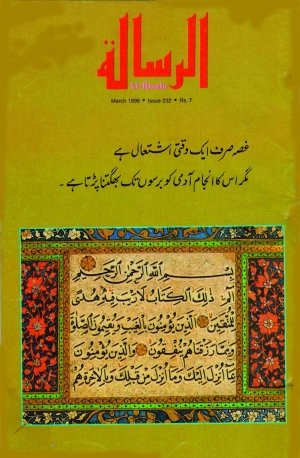 الرسالة
Al-Risala
March 1996 • Issue 232 • Rs. 7
غصہ صرف ایک وقتی اشتعال ہے
مگر اس کا انجام آدمی کو برسوں تک بھگتنا پڑتا ہے ۔
بسم الله الرحمن الرحيم
الم ذلك الكتاب لا ريب فيه هدى
للمتقين الذين يؤمنون بالغيب ويقيمون الصلوة
ومما رزقناهم ينفقون والذين يؤمنون
بما أنزل إليك وما أنزل من قبلك وبالآخرة هم